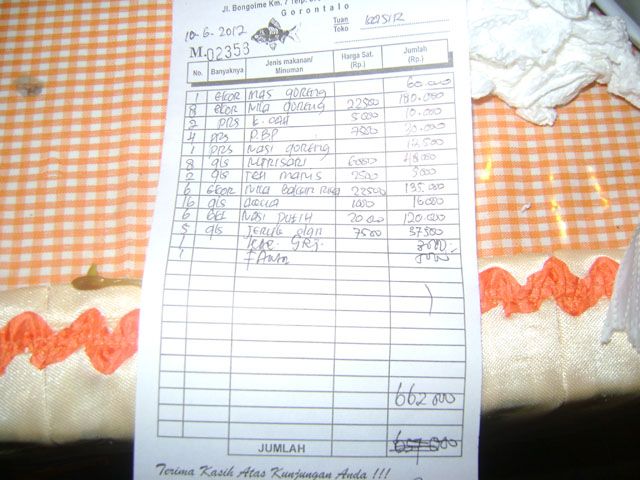 Jl. Bongoime Km. 7 Telp.
Gorontalo
10-6-2012 Tuan Toko KASIR
M.02353
No. Banyaknya Jenis makanan/ Minuman Harga Sat. (Rp.) Jumlah (Rp.)
1 ekor mas goreng 60.000
8 ekor nila goreng 22500 180.000
2 prs 5000 10.000
4 prs 7500 30.000
1 prs nasi goreng 12.500
8 gls 6000 48.000
2 gls teh manis 2500 5000
6 ekor nila bakar rica 22500 135.000
16 gls aqua 1000 16000
6 nasi putih 20.000 120.000
5 gls jeruk 7500 37500
1
1
662.000
JUMLAH 657.000
Terima Kasih Atas Kunjungan Anda !!!